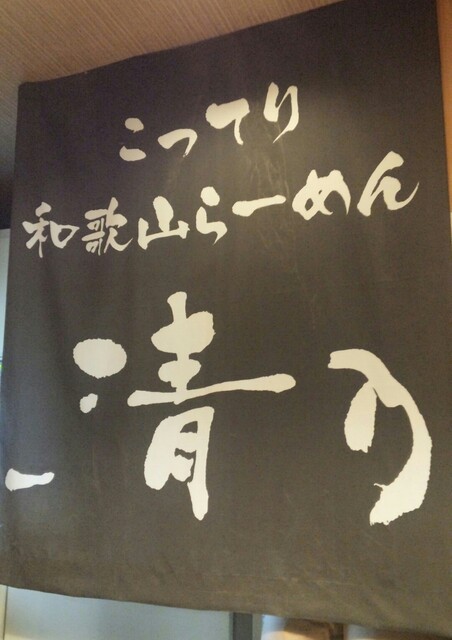 こってり
和歌山らーめん
清乃